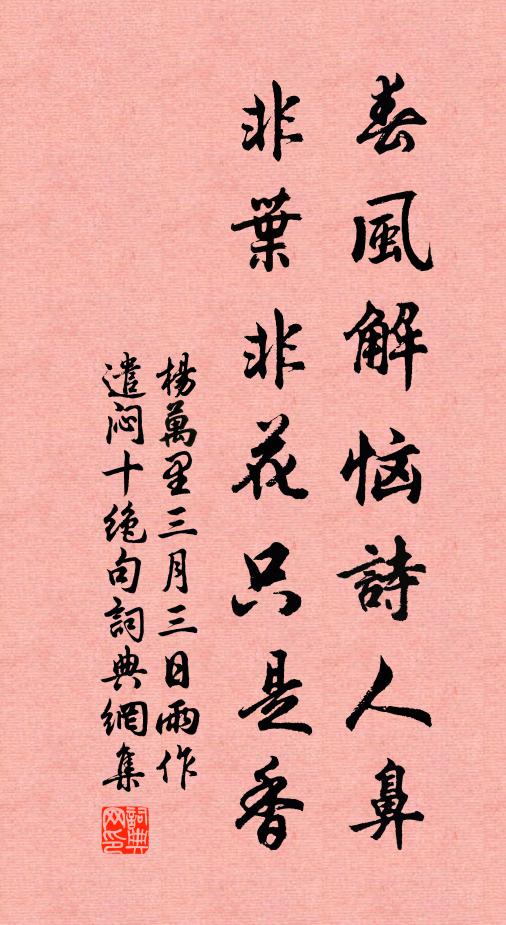 春風解恼詩人鼻
非葉非花只是香
楊萬里三月三日雨作
遣闷十绝句詞典網集
詞典网印